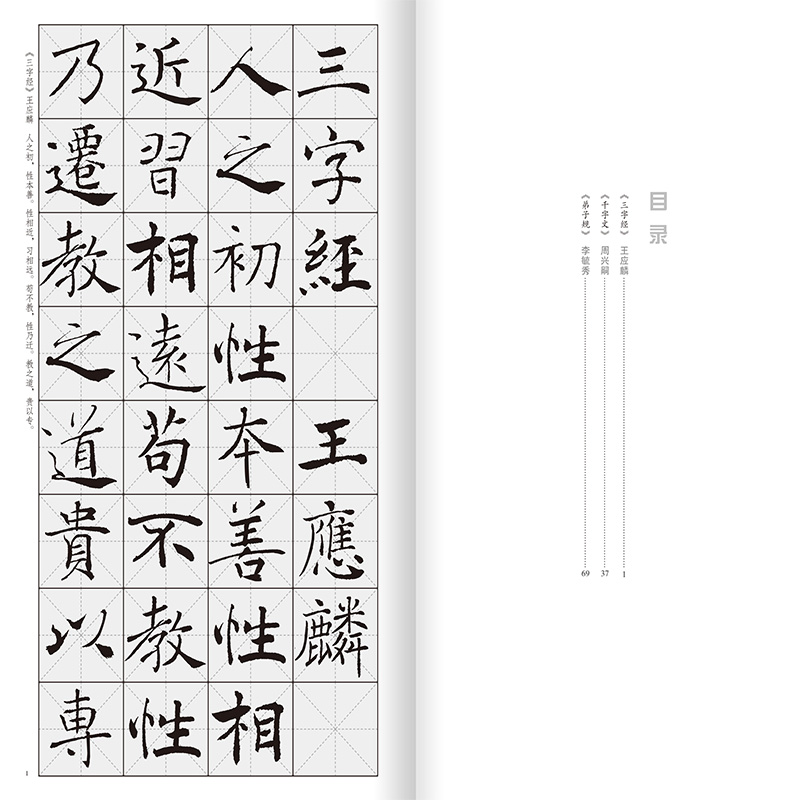 目录
《三字经》 王应麟 1
《千字文》 周兴嗣 37
《弟子规》 李毓秀 69
三字經 王應麟
人之初性本善性相
近習相遠苟不教性
乃遷教之道貴以專
《三字经》王应麟 人之初，性本善。性相近，习相远。苟不教，性乃迁。教之道，贵以专。
1